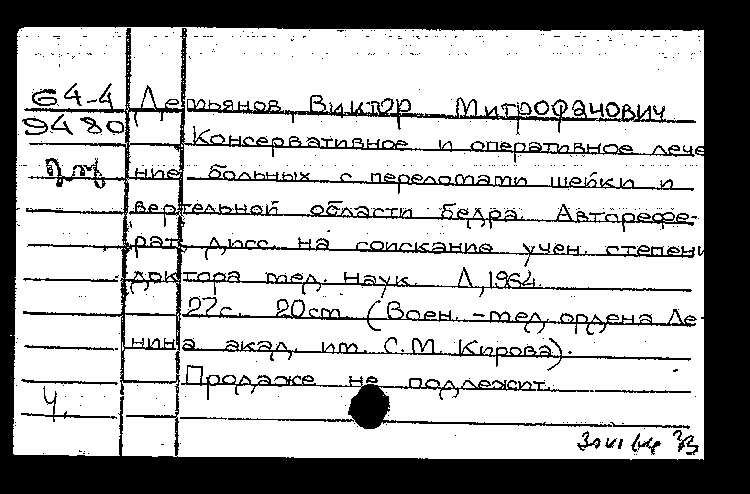 64-4 Демьянов, Виктор Митрофанович
9480 Консервативное и оперативное лече
ние больных с переломами шейки и
вертельной области бедра. Авторефе-
рат дисс. на соискание учен. степени
доктора мед. наук. Л, 1964.
27с. 20см (Воен.-мед. ордена Ле-
нина акад. им. С.М. Кирова).
Продаже не подлежит.